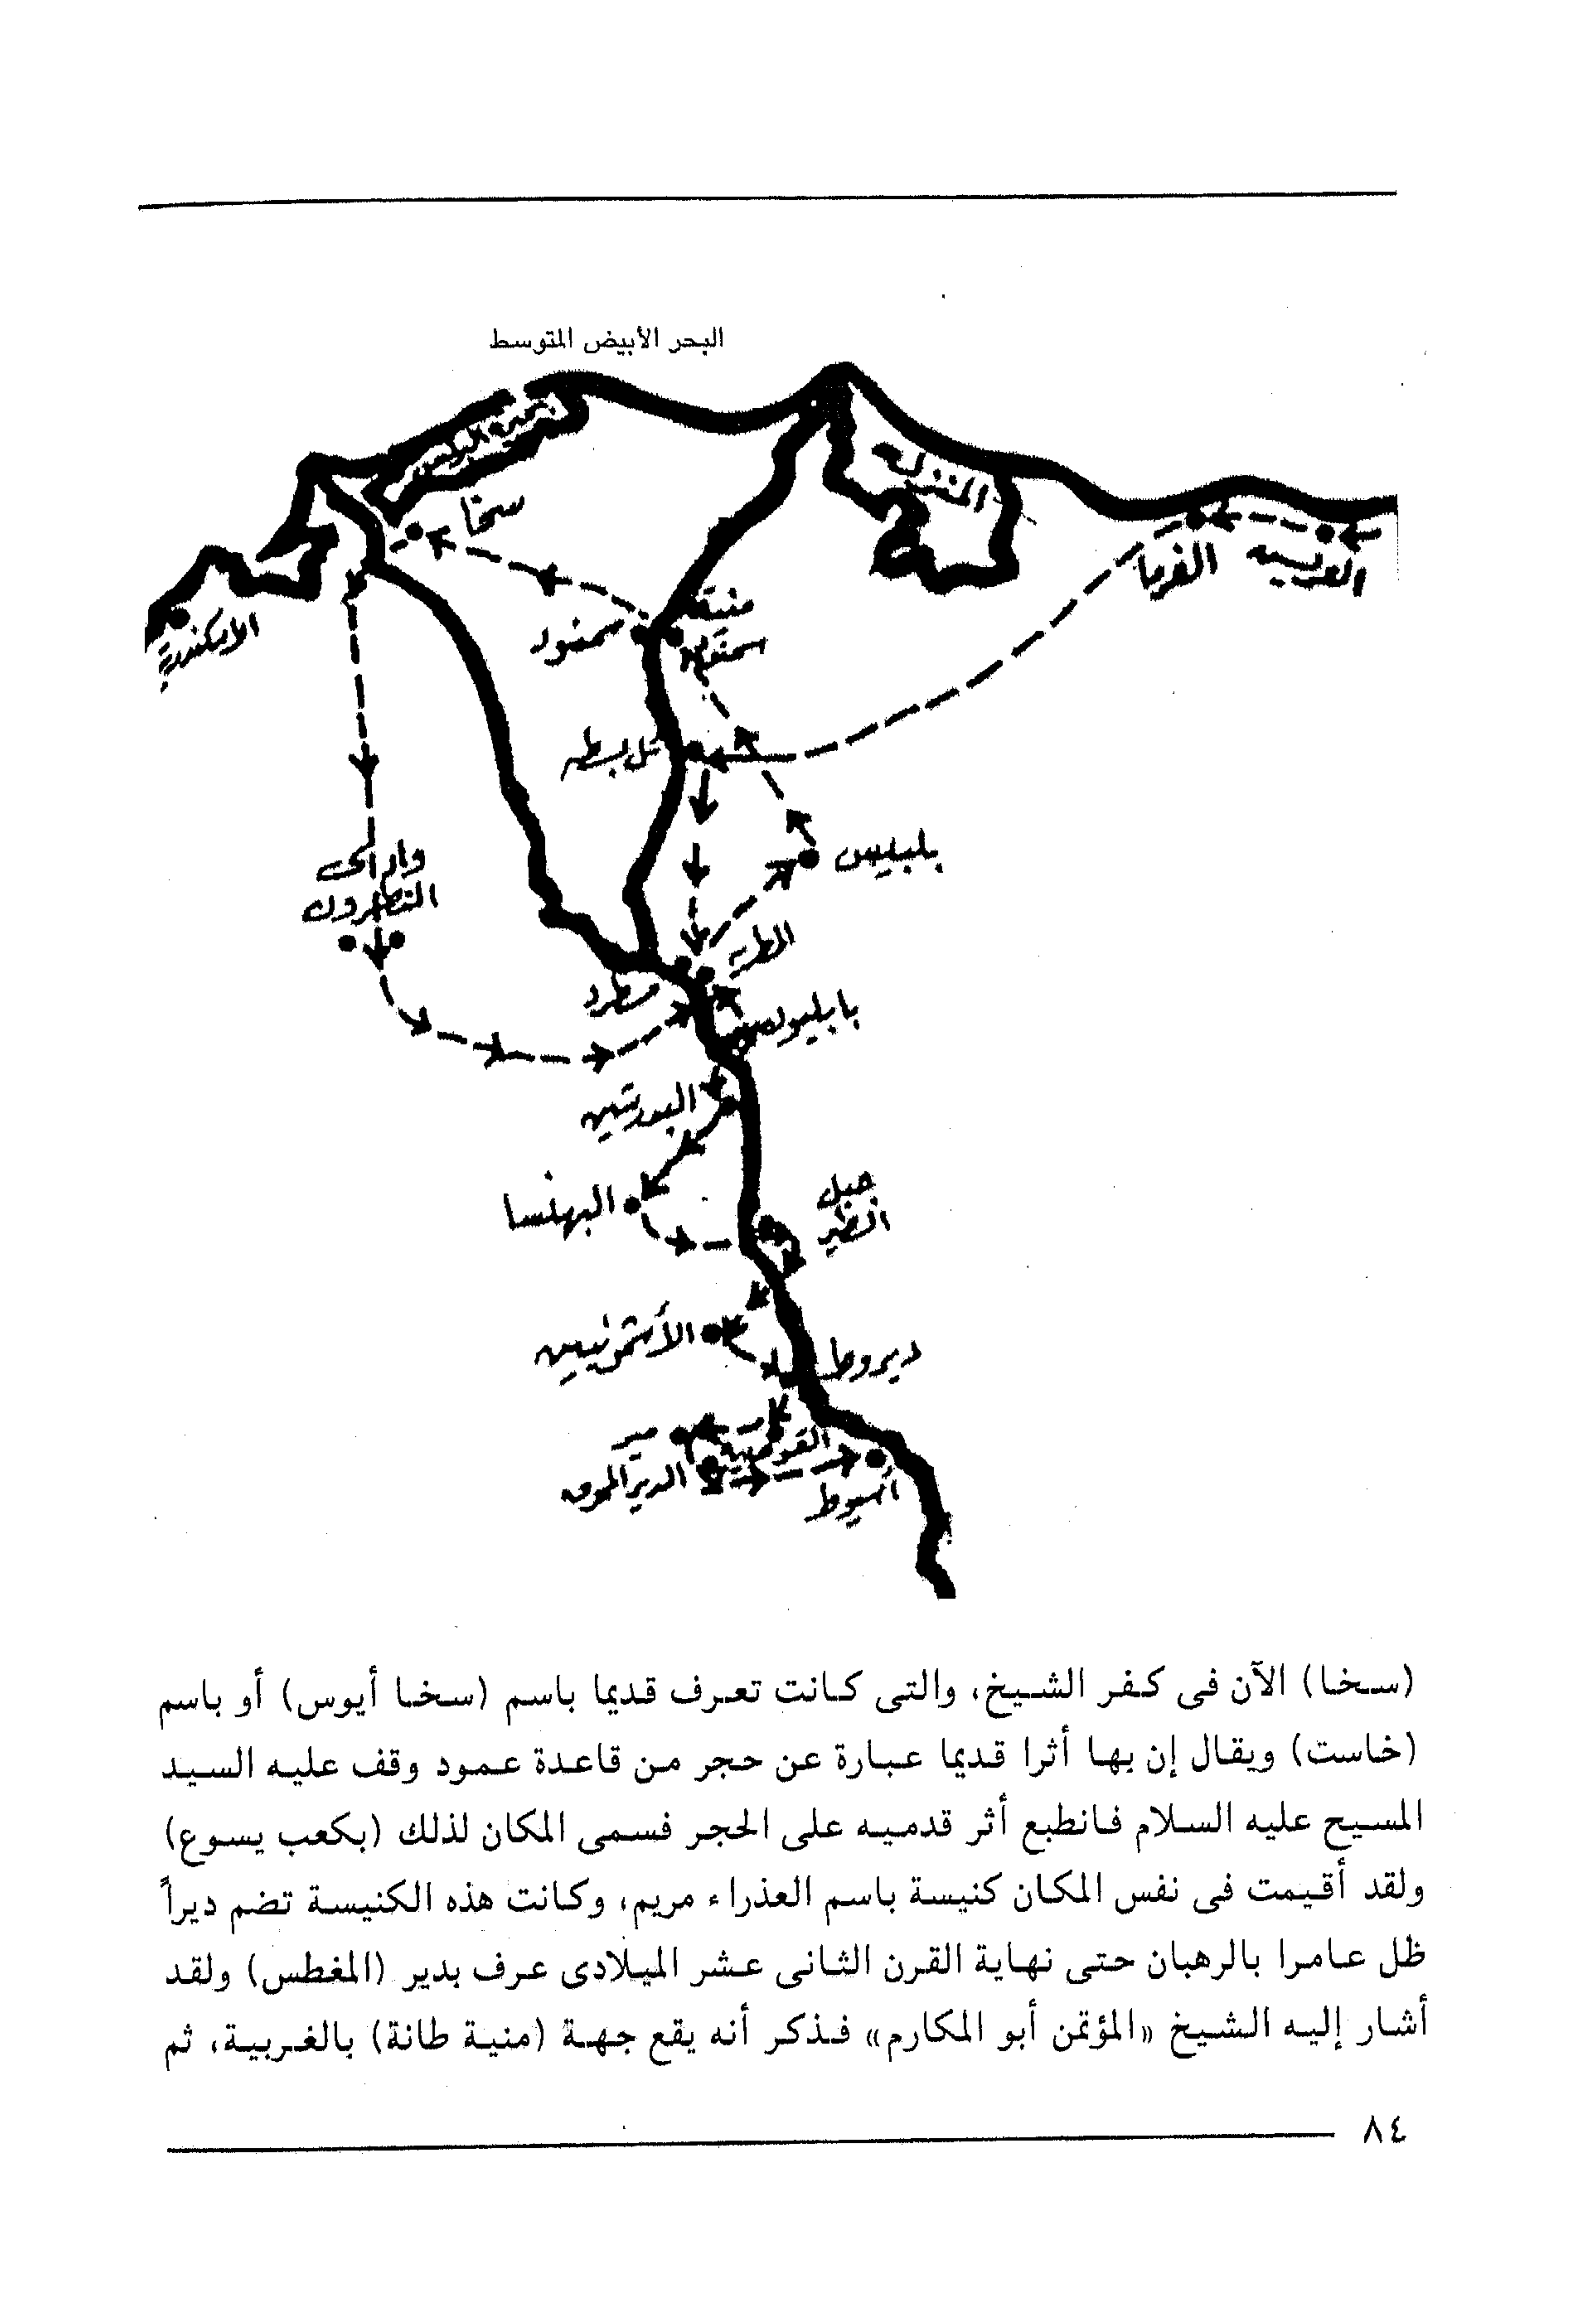 البحر الأبيض المتوسط
سخا
المنزلة
الفرما
العريش
الاسكندرية
سمنود
منية
تل بسطه
بلبيس
وادى
النطرون
مسطرد
بابليون
البهنسا
جبل
الطير
الأشمونيين
ديروط
مير
القوصية
الدير المحرق
أسيوط
(سخا) الآن فى كفر الشيخ، والتى كانت تعرف قديما باسم (سخا أيوس) أو باسم
(خاست) ويقال إن بها أثرا قديما عبارة عن حجر من قاعدة عمود وقف عليه السيد
المسيح عليه السلام فانطبع أثر قدميه على الحجر فسمى المكان لذلك (بكعب يسوع)
ولقد أقيمت فى نفس المكان كنيسة باسم العذراء مريم، وكانت هذه الكنيسة تضم ديراً
ظل عامرا بالرهبان حتى نهاية القرن الثانى عشر الميلادى عرف بدير (المغطس) ولقد
أشار إليه الشيخ «المؤتمن أبو المكارم» فذكر أنه يقع جهة (منية طانة) بالغربية، ثم
٨٤